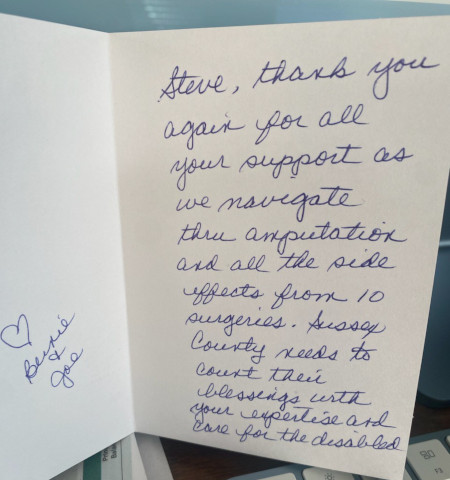 Steve, thank you
again for all
your support as
we navigate
thru amputation
and all the side
effects from 10
surgeries. Sussex
County needs to
count their
blessings with
your expertise and
care for the disabled
♡
&
Joe